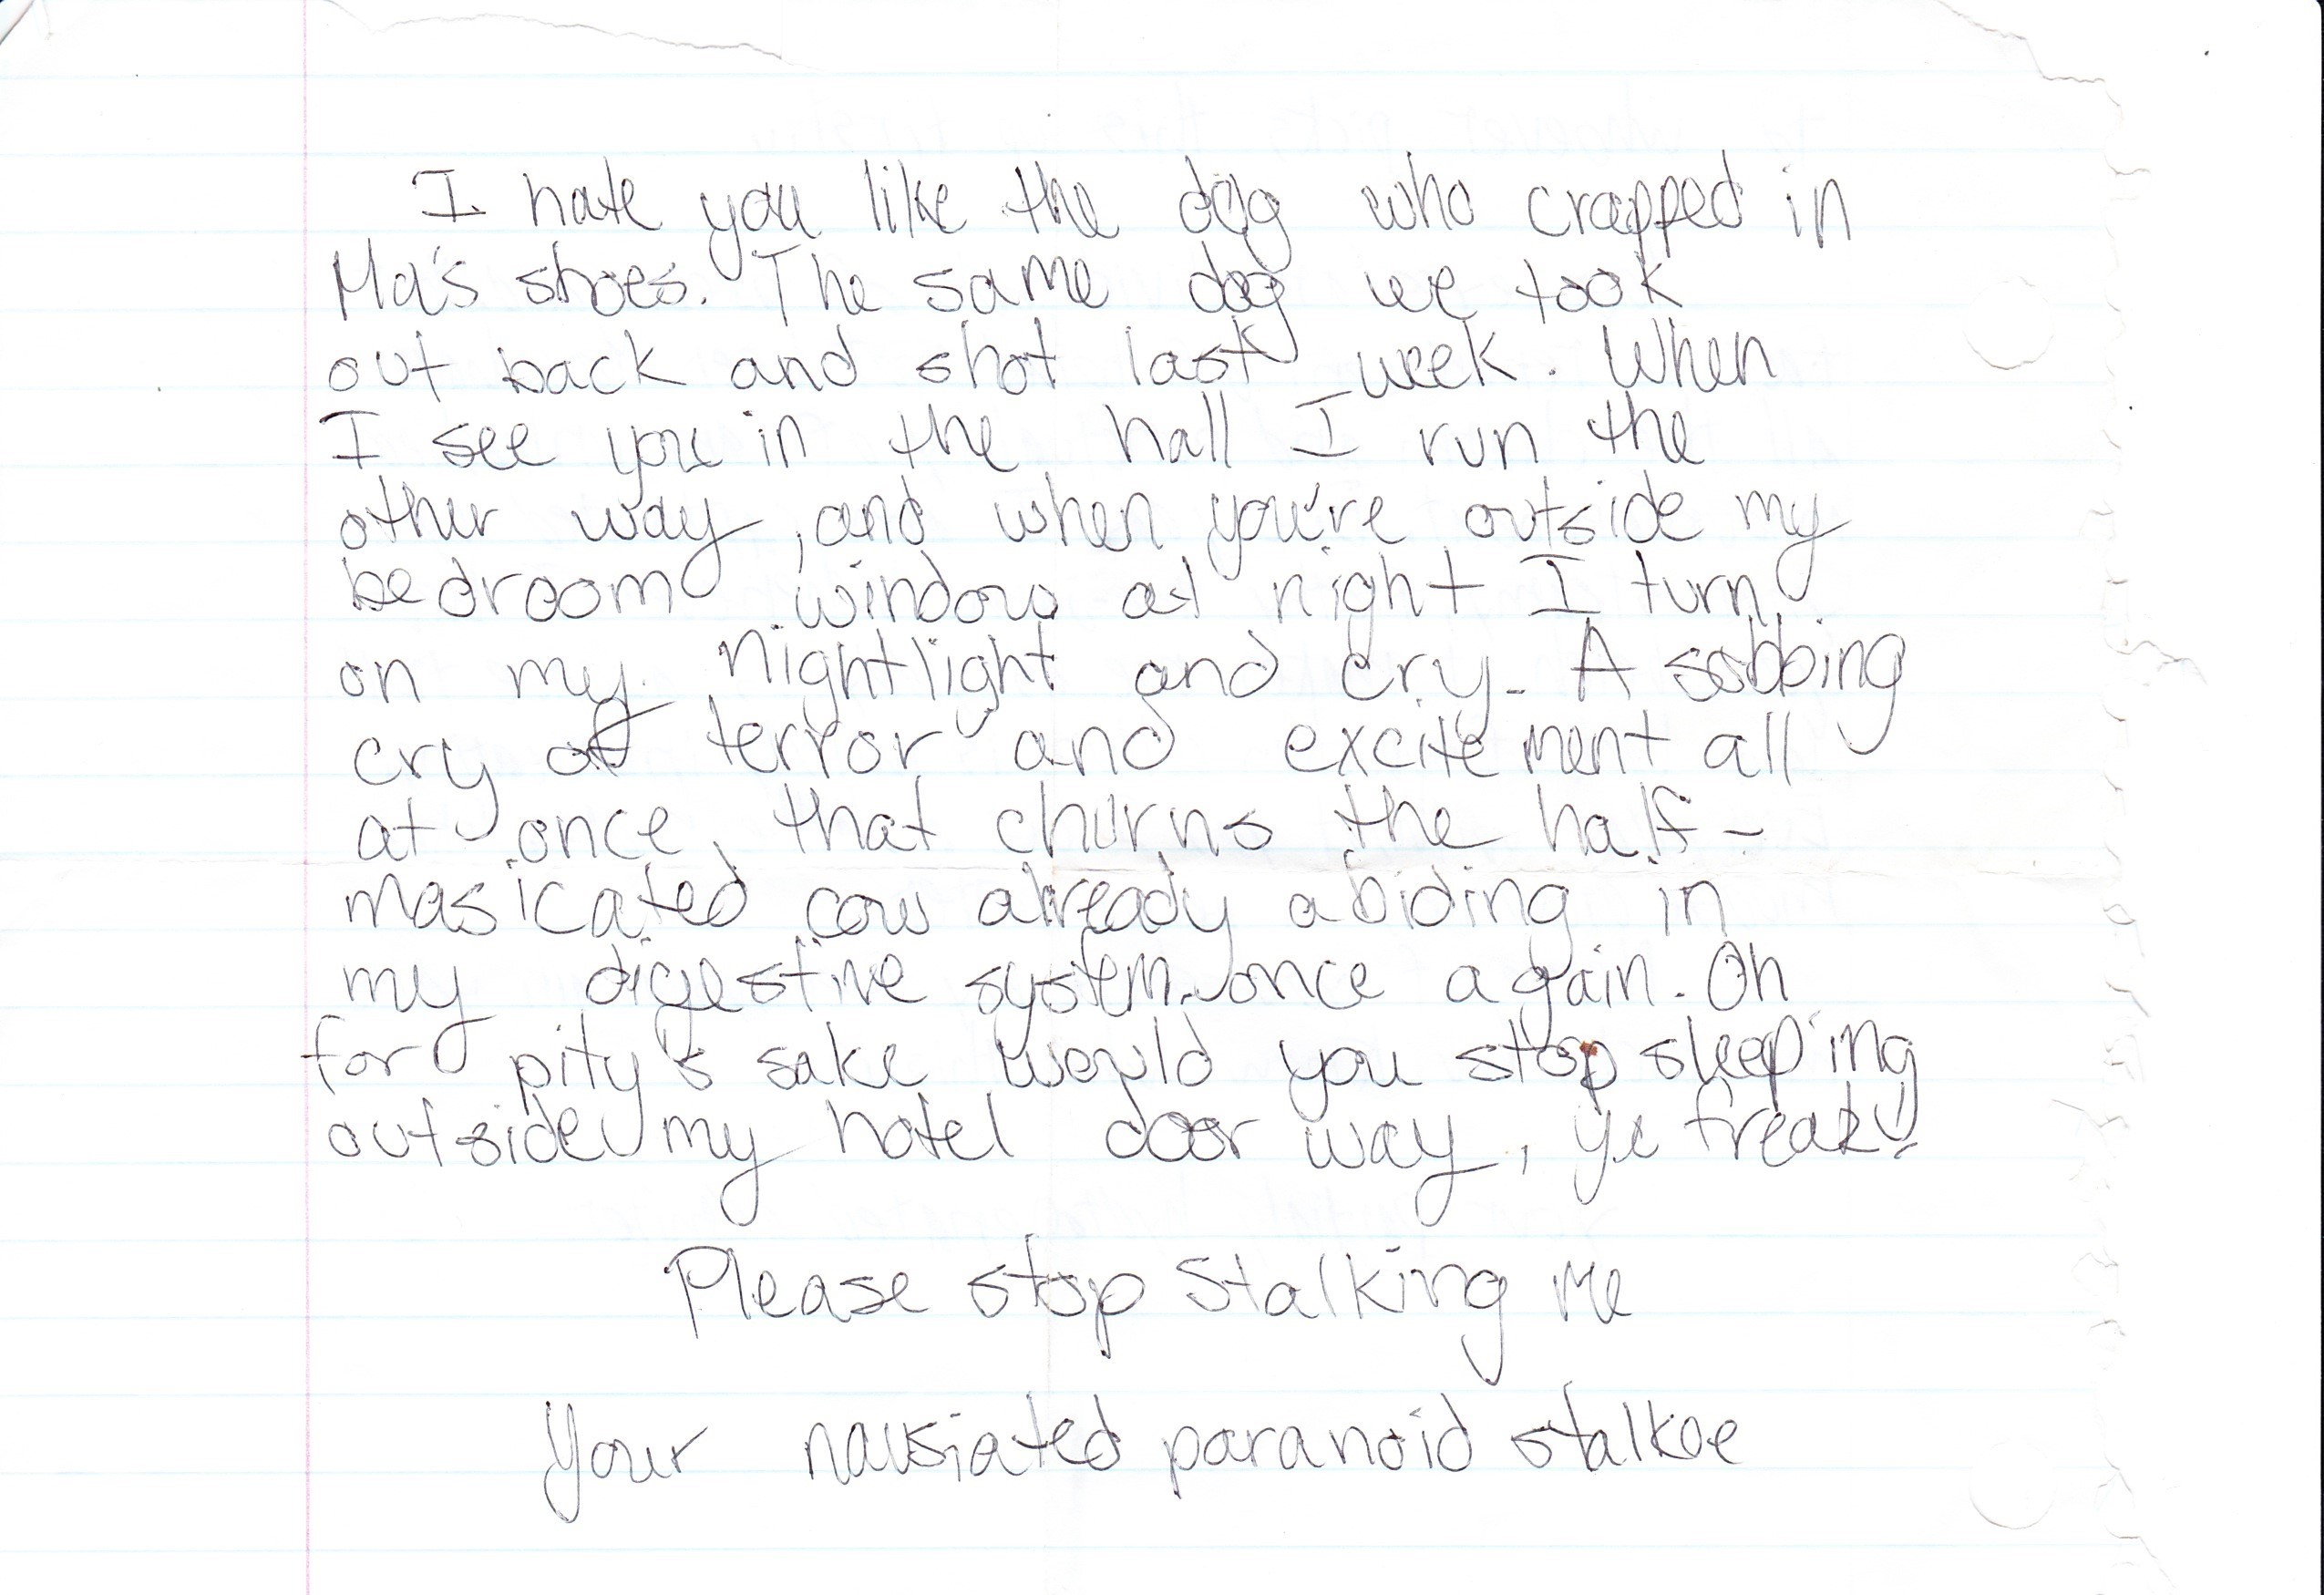 I hate you like the dog who crapped in
Ma's shoes. The same dog we took
out back and shot last week. When
I see you in the hall I run the
other way, and when you're outside my
bedroom window at night I turn
on my nightlight and cry. A sobbing
cry of terror and excitement all
at once, that churns the half-
masicated cow already abiding in
my digestive system once again. Oh
for pity's sake would you stop sleeping
outside my hotel door way, ye freak!
Please stop stalking me
Your nausiated paranoid stalkee